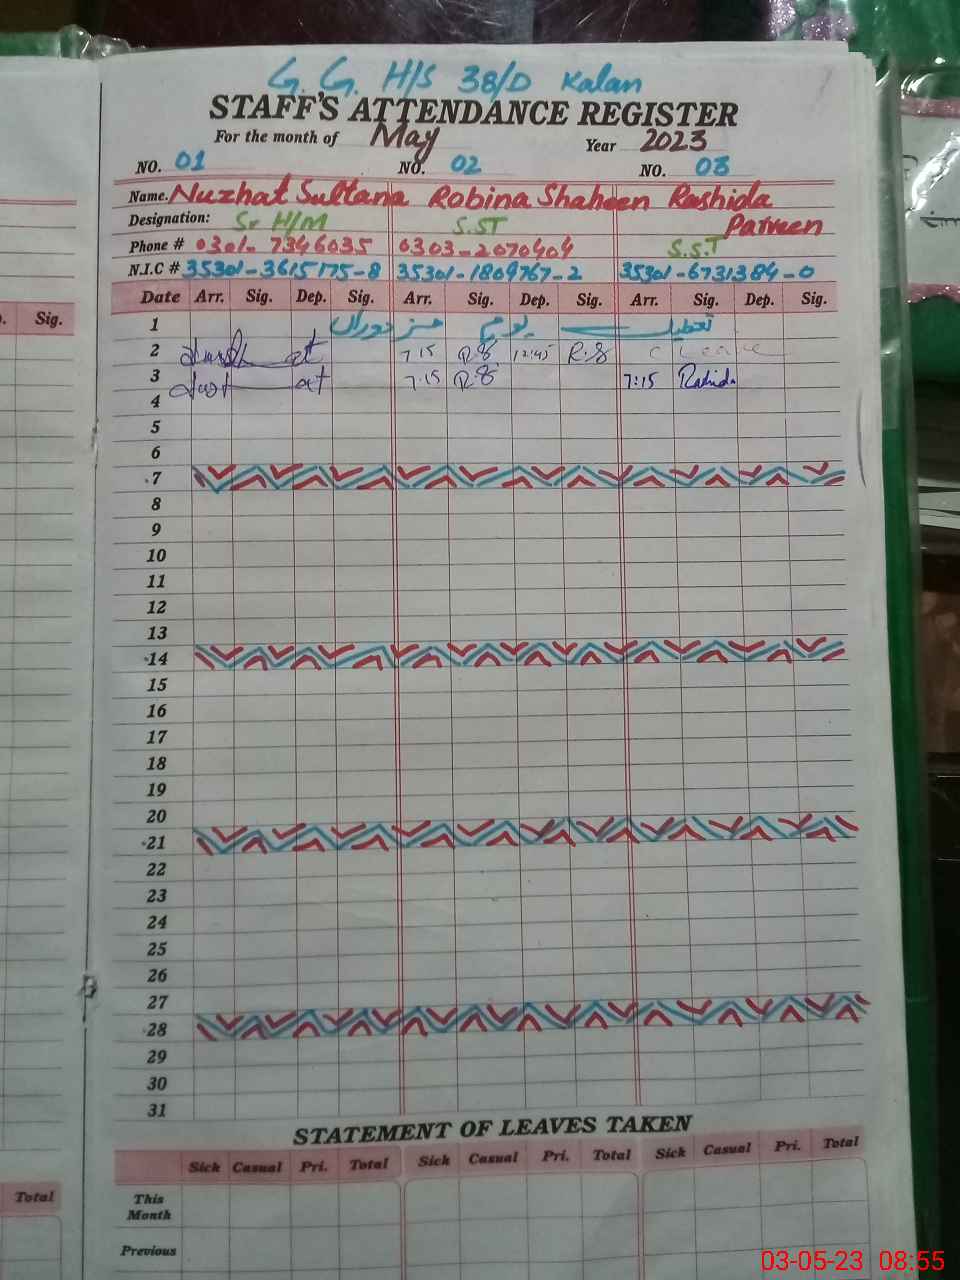 G. G. H/S 38/D Kalan
STAFF'S ATTENDANCE REGISTER
For the month of May Year 2023
NO. 01 NO. 02 NO. 03
Name. Nuzhat Sultana Robina Shaheen Rashida
Designation: Sr H/M S.ST Parveen
Phone # 0301-7346035 0303-2070404 S.S.T
N.I.C # 35301-3615175-8 35301-1809767-2 35301-6731384-0
Date Arr. Sig. Dep. Sig. Arr. Sig. Dep. Sig. Arr. Sig. Dep. Sig.
1 تعطیل یوم مزدوراں
2 7 15 R.S 12:45 R.S C Leave
3 7.15 R.S 7:15 Rashida
4
5
6
7
8
9
10
11
12
13
14
15
16
17
18
19
20
21
22
23
24
25
26
27
28
29
30
31
STATEMENT OF LEAVES TAKEN
Sick Casual Pri. Total Sick Casual Pri. Total Sick Casual Pri. Total
This
Month
Previous
Sig.
Total
03-05-23 08:55